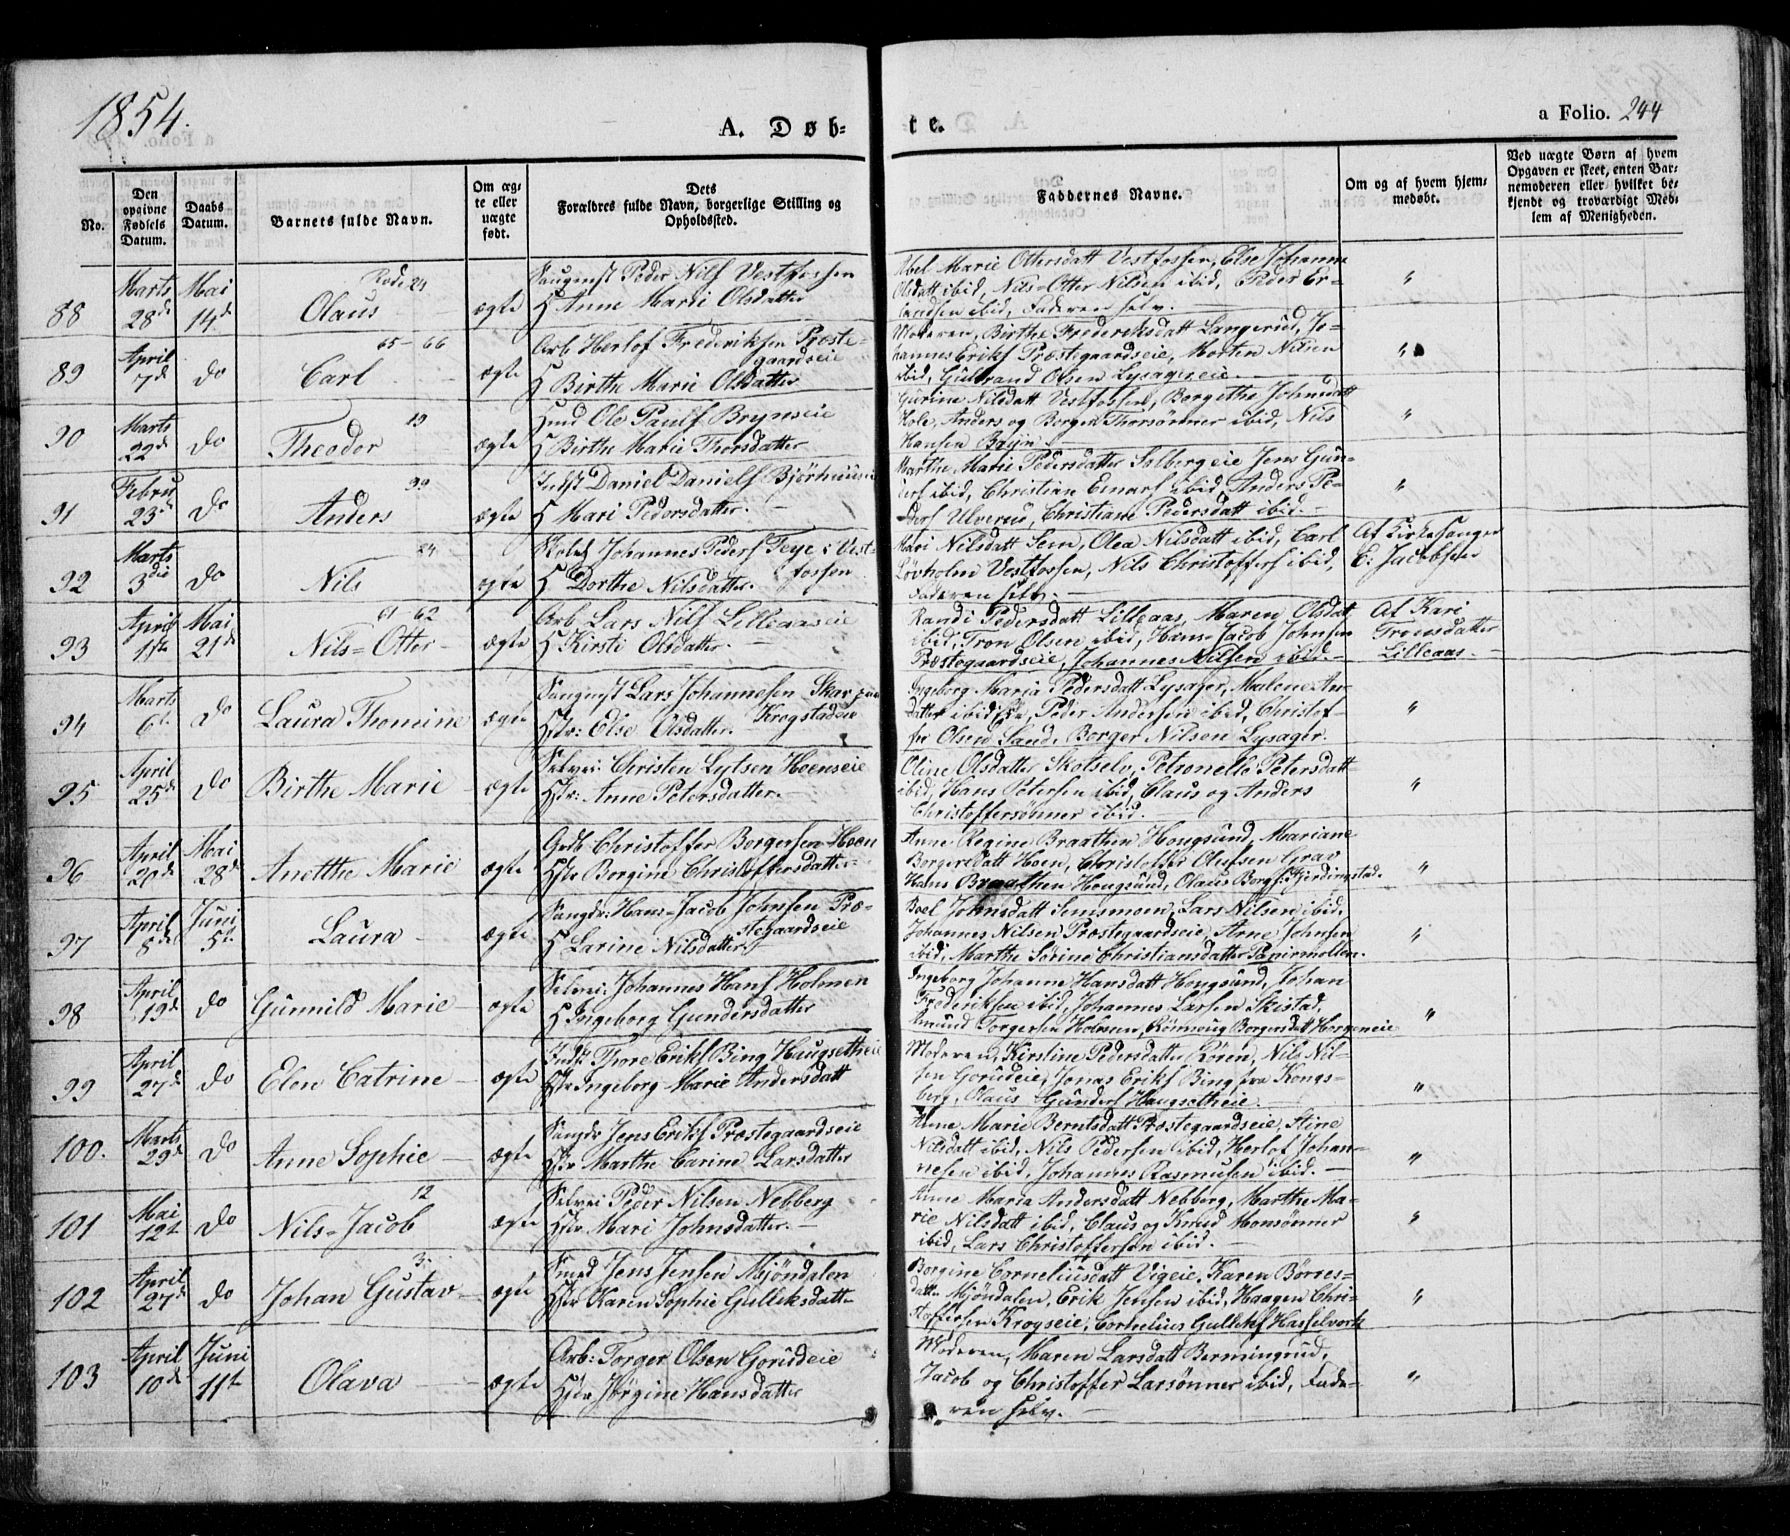 1854.
A. Døb-
te.
a Folio. 244
No.
Den opgivne Fødsels Datum.
Daabs Datum.
Barnets fulde Navn.
Om ægte eller uægte født.
Dets Forældres fulde Navn, borgerlige Stilling og Opholdssted.
Faddernes Navne.
Om og af hvem hjemmedøbt.
Ved uægte Børn af hvem Opgaven er skeet, enten Barnemoderen eller hvilket bekjendt og troværdigt Medlem af Menigheden.
88 Marts 28de Mai 14de Olaus ægte
Peder Nils Vestfossen
H Anne Marie Olsdatter
Abel Marie Ottersdatt Vestfossen, Else Johanne
Olsdatt ibid, Nils-Otter Nilsen ibid, Peder Er-
landsen ibid, Faderen selv.
"
65-66
89 April 7de do Carl ægte
Arb Herlof Frederiksen Præste-
gaardseie
H Birthe Marie Olsdatter
Moderen, Birthe Frederiksdatt Langerud, Jo-
hannes Eriks Præstegaardseie, Morten Nilsen
ibid, Gulbrand Olsen Lysagereie.
"
19
90 Marts 22de do Theodor ægte
Huusmd Ole Pauls Brynseie
H Birthe Marie Thorsdatter
Gurine Nilsdatt Vestfossen, Borgethe Johnsdatt
Hole, Anders og Borger Thorsønner ibid, Nils
Hansen Bryn
"
99
91 Febru 23de do Anders ægte
Indst Daniel Daniels
H Mari Pedersdatter.
Marthe Marie Pedersdatter Solbergeie Jens Gun-
ders ibid, Christian Einars ibid, Anders Pe-
ders Ulverud, Christiane Pedersdatt ibid.
"
84
92 Marts 3die do Nils ægte
Skolel Johannes Peders Feye i Vest-
fossen
H Dorthe Nilsdatter.
Mari Nilsdatt Sem, Olea Nilsdatt ibid, Carl
Løvholm Vestfossen, Nils Christoffers ibid,
Faderen selv.
Af Kirkesanger
E. Jacobsen
61-62
93 April 1ste Mai 21de Nils-Otter ægte
Arb Lars Nils Lilleaaseie
H Kirsti Olsdatter.
Randi Pedersdatt Lilleaas, Maren Olsdat
ibid, Tron Olsen ibid, Hans-Jacob Johnsen
Præstegaardseie, Johannes Nilsen ibid.
Af Kari
Tronsdatter
Lilleaas.
94 Marts 6te do Laura Thomine ægte
Saugmst Lars Johannesen
Krogstadeie
Hstr: Else Olsdatter.
Ingeborg Maria Pedersdatt Lysager, Malene An-
datter ibid, Peder Andersen ibid, Christof-
fer Olsen Sand, Borger Nilsen Lysager.
"
95 April 25de do Birthe Marie ægte
Selvei: Christen Lytsen Hoenseie
Hstr: Anne Petersdatter.
Oline Olsdatter Skotselv, Petronelle Petersdatt
ibid, Hans Petersen ibid, Claus og Anders
Christoffersønner ibid.
"
96 April 20de Mai 28de Anetthe Marie ægte
Grdb Christoffer Borgersen Hoen
Hstr Borgine Christoffersdatter
Anne Regine Braathen Hougsund, Mariane
Borgersdatt Hoen, Christoffer Olufsen Grav
Hans Braathen Hougsund, Olaus Borgs: Hjerdingstad.
"
97 April 8de Juni 5te Laura ægte
Saugdr: Hans-Jacob Johnsen Præ-
stegaardseie
H Larine Nilsdatter
Boel Johnsdatt Semsmoen, Lars Nilsen ibid,
Johannes Nilsen Præstegaardseie, Arne Johnsen
ibid, Marthe Sørine Christiansdatter Papirmøllen.
"
98 April 19de do Gunnild Marie ægte
Selvei Johannes Hans Holmen
H Ingeborg Gundersdatter
Ingeborg Johanne Hansdatt Hougsund, Johan
Frederiksen ibid, Johannes Larsen Skistad,
Amund Torgersen Holmen, Rønnaug Borgersdatt Horgeneie
"
99 April 27de do Elen Catrine ægte
Indst Thore Eriks Bing Haugsetheie
Hstr Ingeborg Marie Andersdatt
Moderen, Kirstine Pedersdatter Røren, Nils Nil-
sen Gorudeie, Jonas Eriks Bing fra Kongs-
berg, Olaus Gunders Haugsetheie.
"
100. Marts 29de do Anne Sophie ægte
Saugdr Jens Eriks Præstegaardseie
Hstr Marthe Carine Larsdatter
Anne Marie Berntsdatt Præstegaardseie, Stine
Nilsdatt ibid, Nils Pedersen ibid, Herlof Johan-
nesen ibid, Johannes Rasmusen ibid.
"
12
101 Mai 12te do Nils-Jacob ægte
Selvei Peder Nilsen Nebberg
Hstr Mari Johnsdatter.
Anne Maria Andersdatt Nebberg, Marthe Ma-
rie Nilsdatt ibid, Claus og Knud Monsønner
ibid, Lars Christoffersen ibid.
"
3
102 April 27de do Johan Gustav ægte
Smed Jens Jensen Mjøndalen
Hstr Karen Sophie Gulliksdatt
Borgine Corneliusdatt Vigeie, Karen Børres-
datter Mjøndalen, Erik Jensen ibid, Haagen Chri-
stoffersen Krogseie, Cornelius Gulliks Hasselvork
"
103 April 10de Juni 11te Olava ægte
Arb: Torger Olsen Gorudeie
Hstr Jørgine Hansdatter
Moderen, Maren Larsdatt Bermingrud,
Jacob og Christoffer Larsønner ibid, Fade-
ren selv.
"